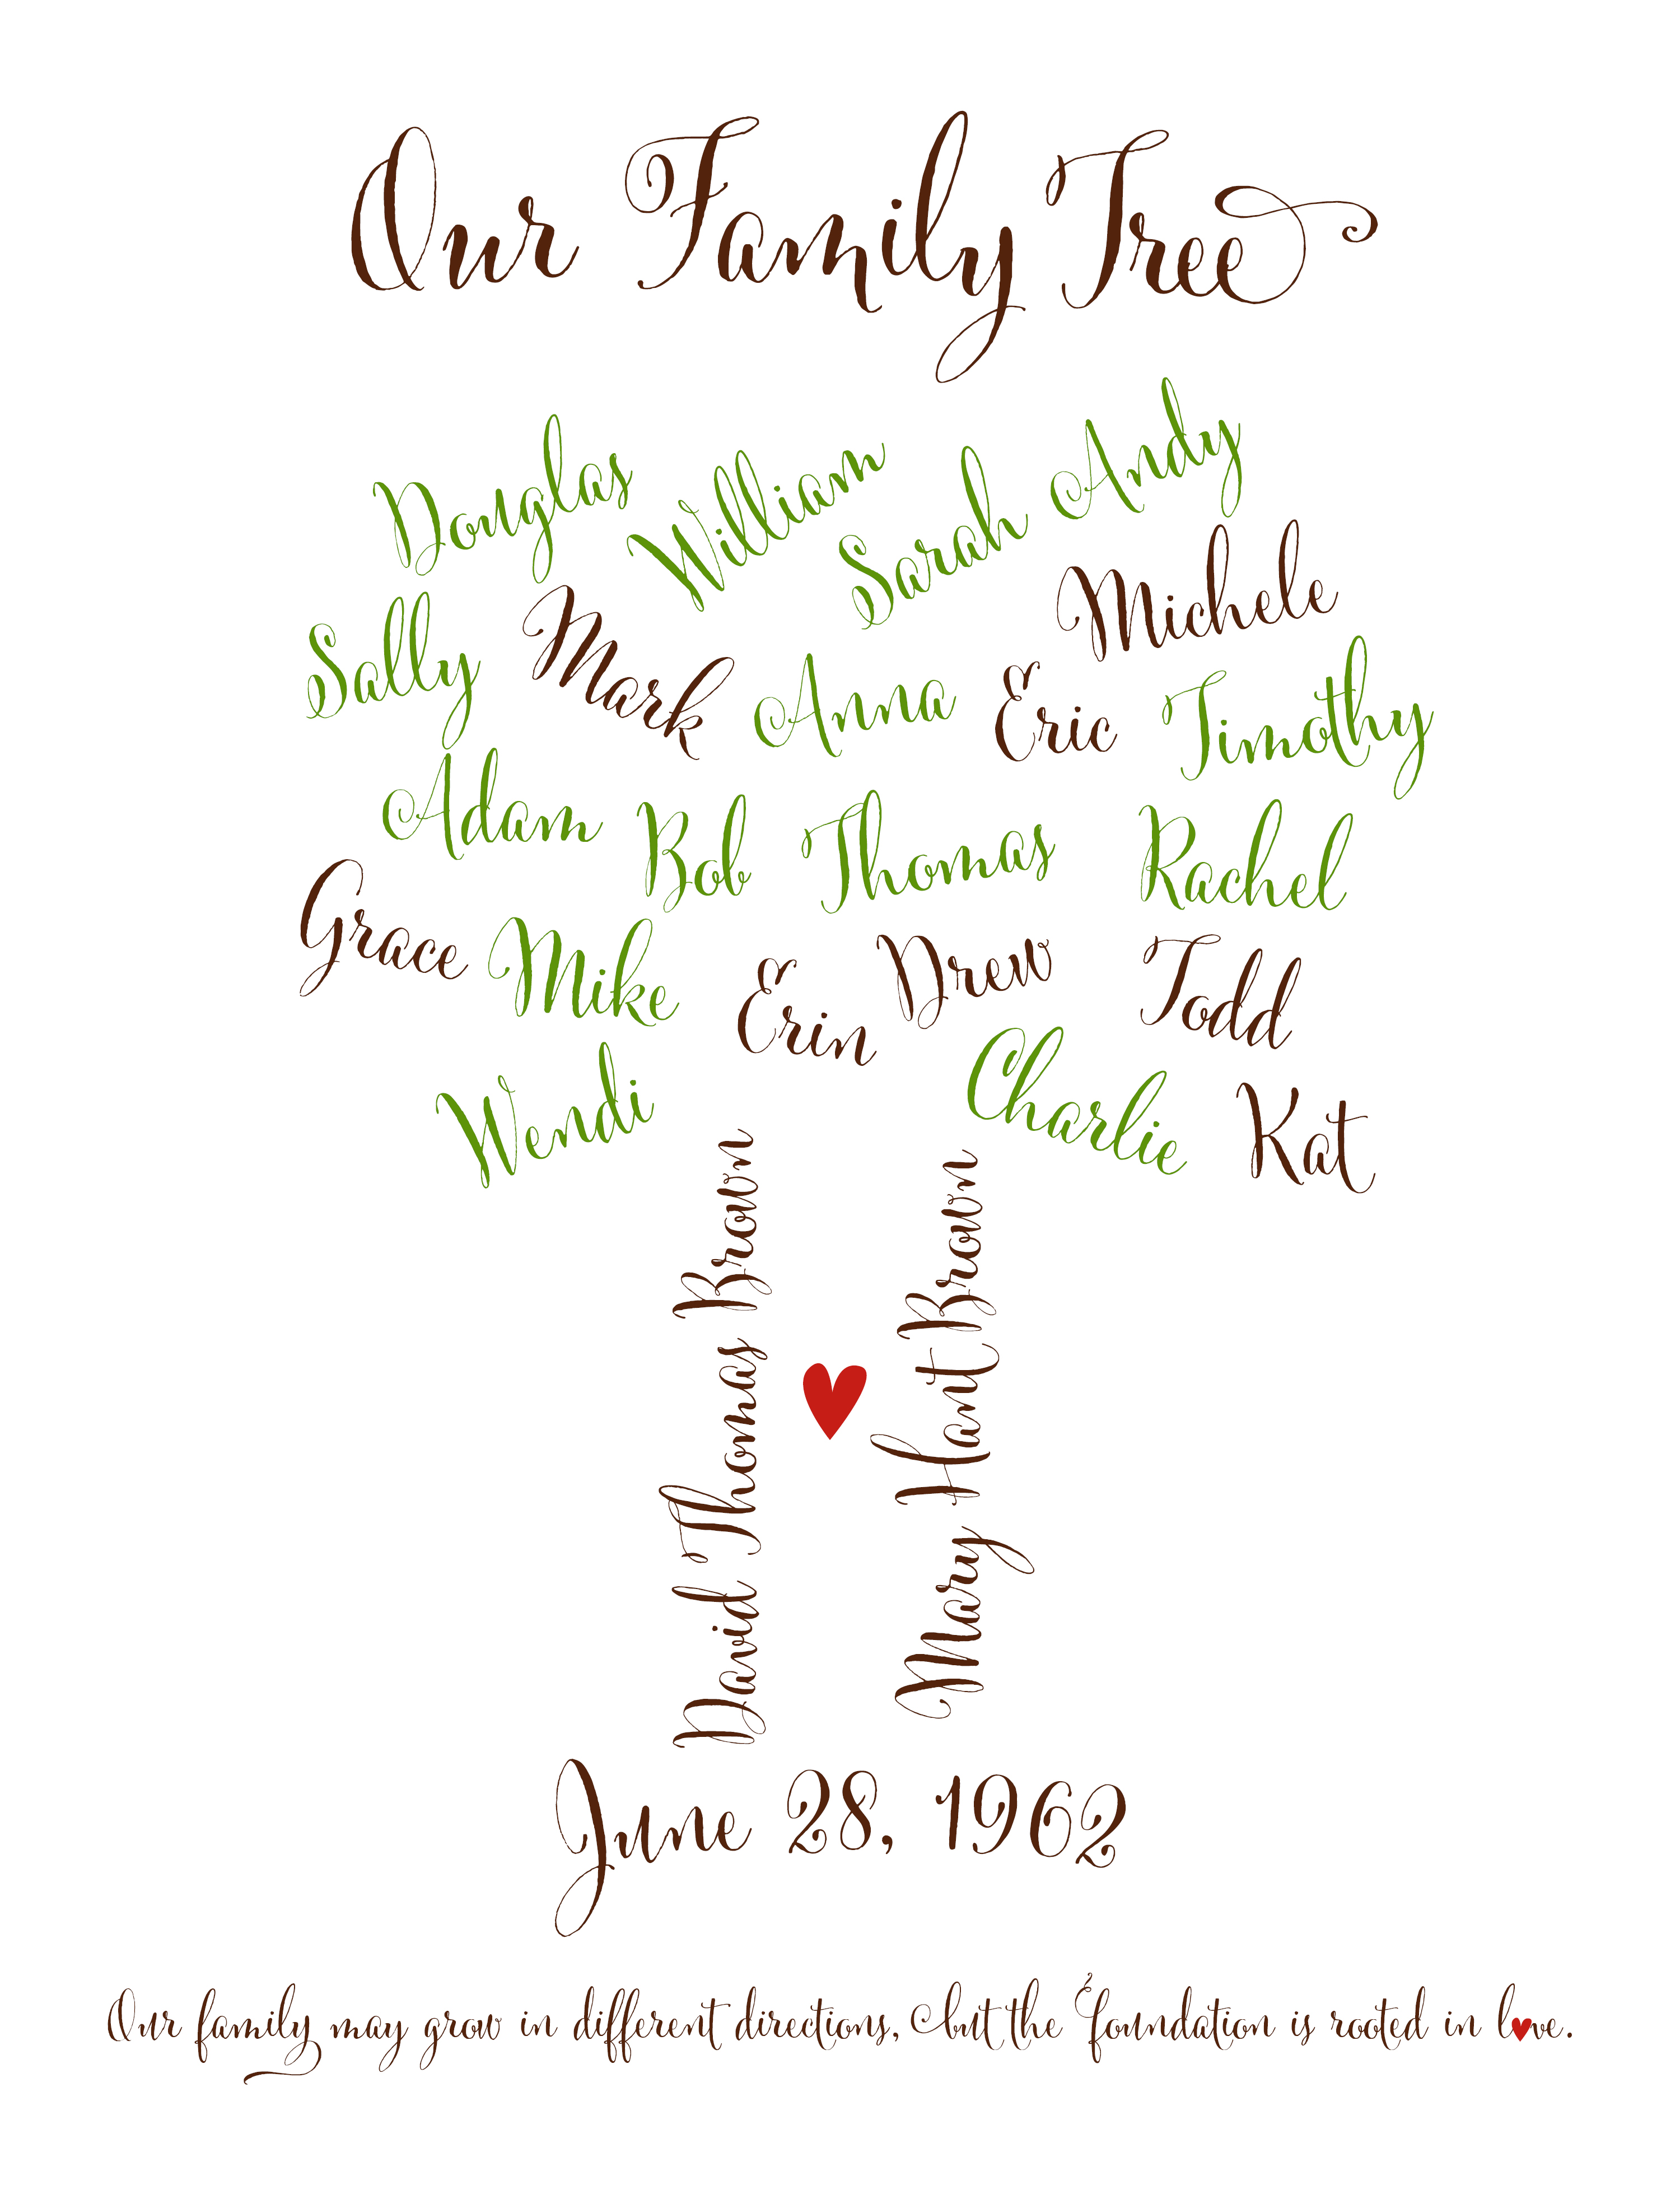 Our Family Tree
Douglas
William
Sarah
Andy
Michele
Sally
Mark
Anna
Eric
Timothy
Adam
Bob
Thomas
Rachel
Grace
Mike
Erin
Drew
Todd
Wendi
Charlie
Kat
David Thomas Brown
Mary Hant Brown
June 28, 1962
Our family may grow in different directions, but the foundation is rooted in love.